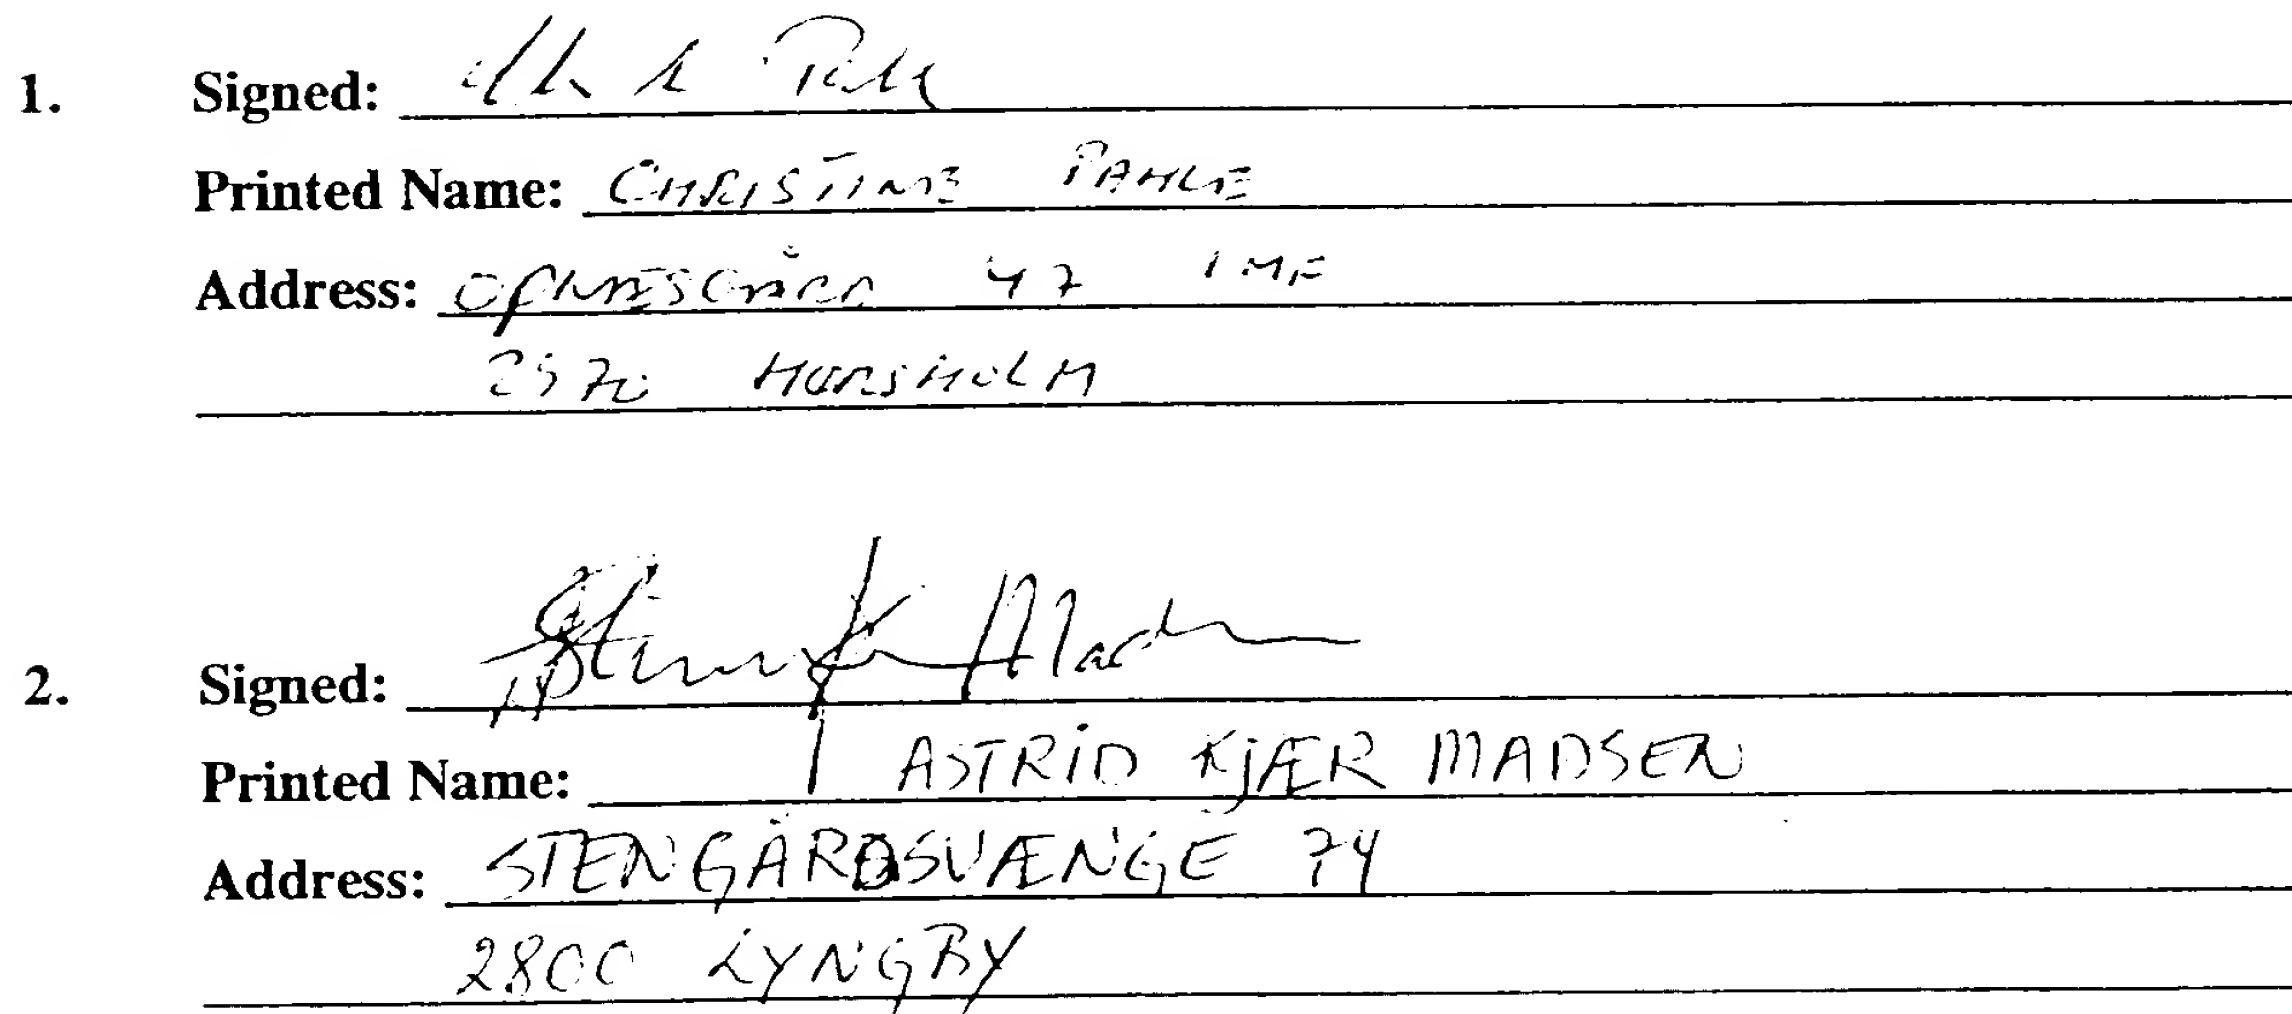 1. Signed:
Printed Name: CHRISTINE PAHLE
Address: 47
2970 HØRSHOLM
2. Signed:
Printed Name: ASTRID KJÆR MADSEN
Address: STENGÅRDSVÆNGE 74
2800 LYNGBY